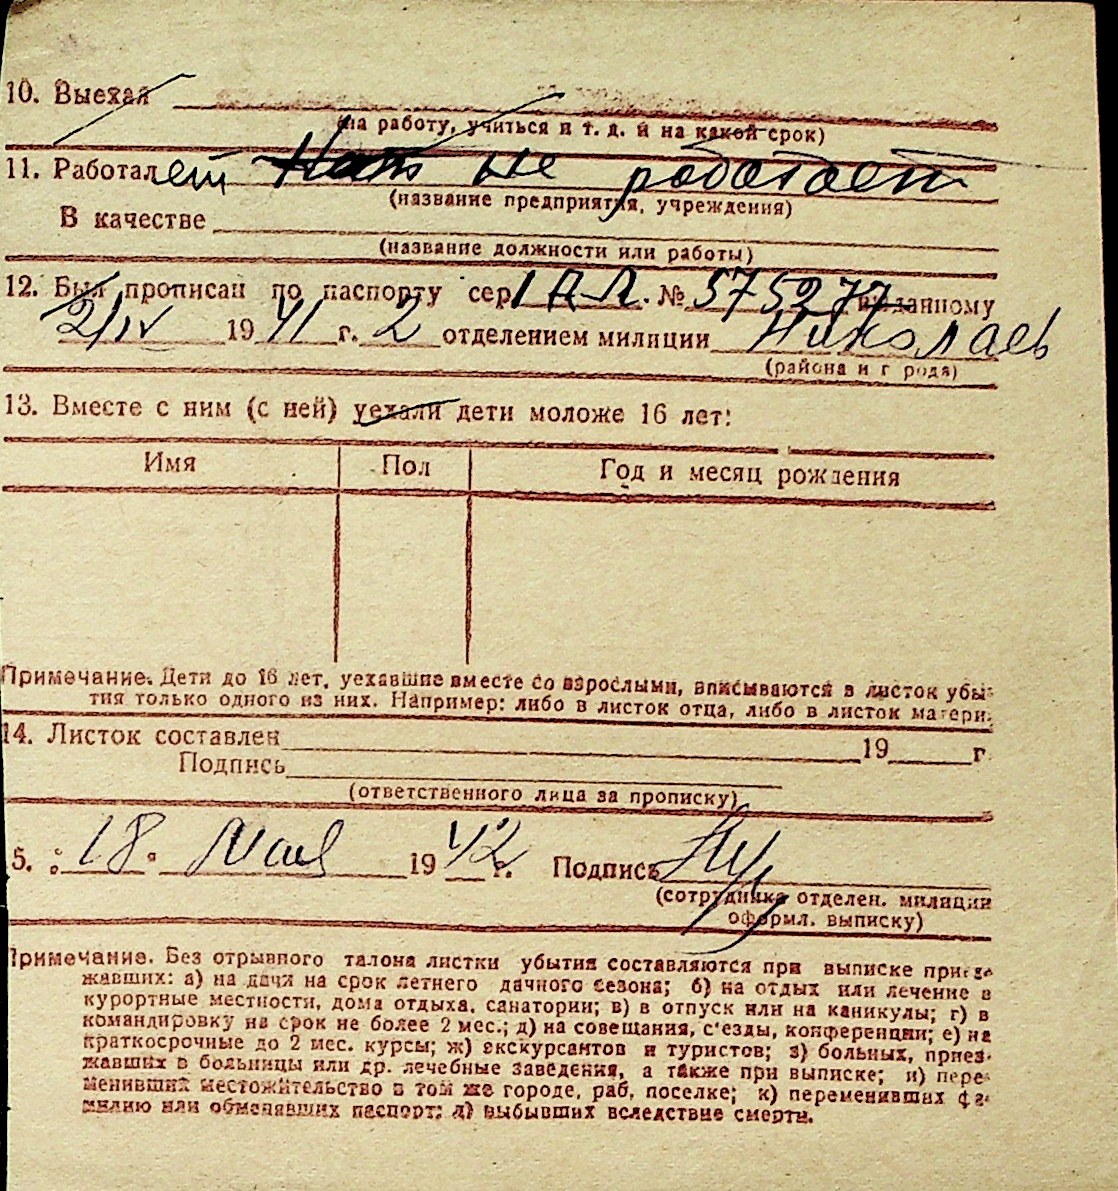 10. Выехал
(на работу, учиться и т. д. и на какой срок)
11. Работал ет не работает
(название предприятия, учреждения)
В качестве
(название должности или работы)
12. Был прописан по паспорту сер. № 575277 выданному
2/IV 1941 г. 2 отделением милиции Николаев
(района и города)
13. Вместе с ним (с ней) уехали дети моложе 16 лет:
Имя Пол Год и месяц рождения
Примечание. Дети до 16 лет, уехавшие вместе со взрослыми, вписываются в листок убы-
тия только одного из них. Например: либо в листок отца, либо в листок матери.
14. Листок составлен 19 г.
Подпись
(ответственного лица за прописку)
5. 18. Мая 1942 г. Подпись
(сотрудника отделен. милиции
оформл. выписку)
Примечание. Без отрывного талона листки убытия составляются при выписке приез-
жавших: а) на дачи на срок летнего дачного сезона; б) на отдых или лечение в
курортные местности, дома отдыха, санатории; в) в отпуск или на каникулы; г) в
командировку на срок не более 2 мес.; д) на совещания, с'езды, конференции; е) на
краткосрочные до 2 мес. курсы; ж) экскурсантов и туристов; з) больных, приез-
жавших в больницы или др. лечебные заведения, а также при выписке; и) пере-
менивших местожительство в том же городе, раб. поселке; к) переменивших фа-
милию или обменявших паспорт; л) выбывших вследствие смерти.